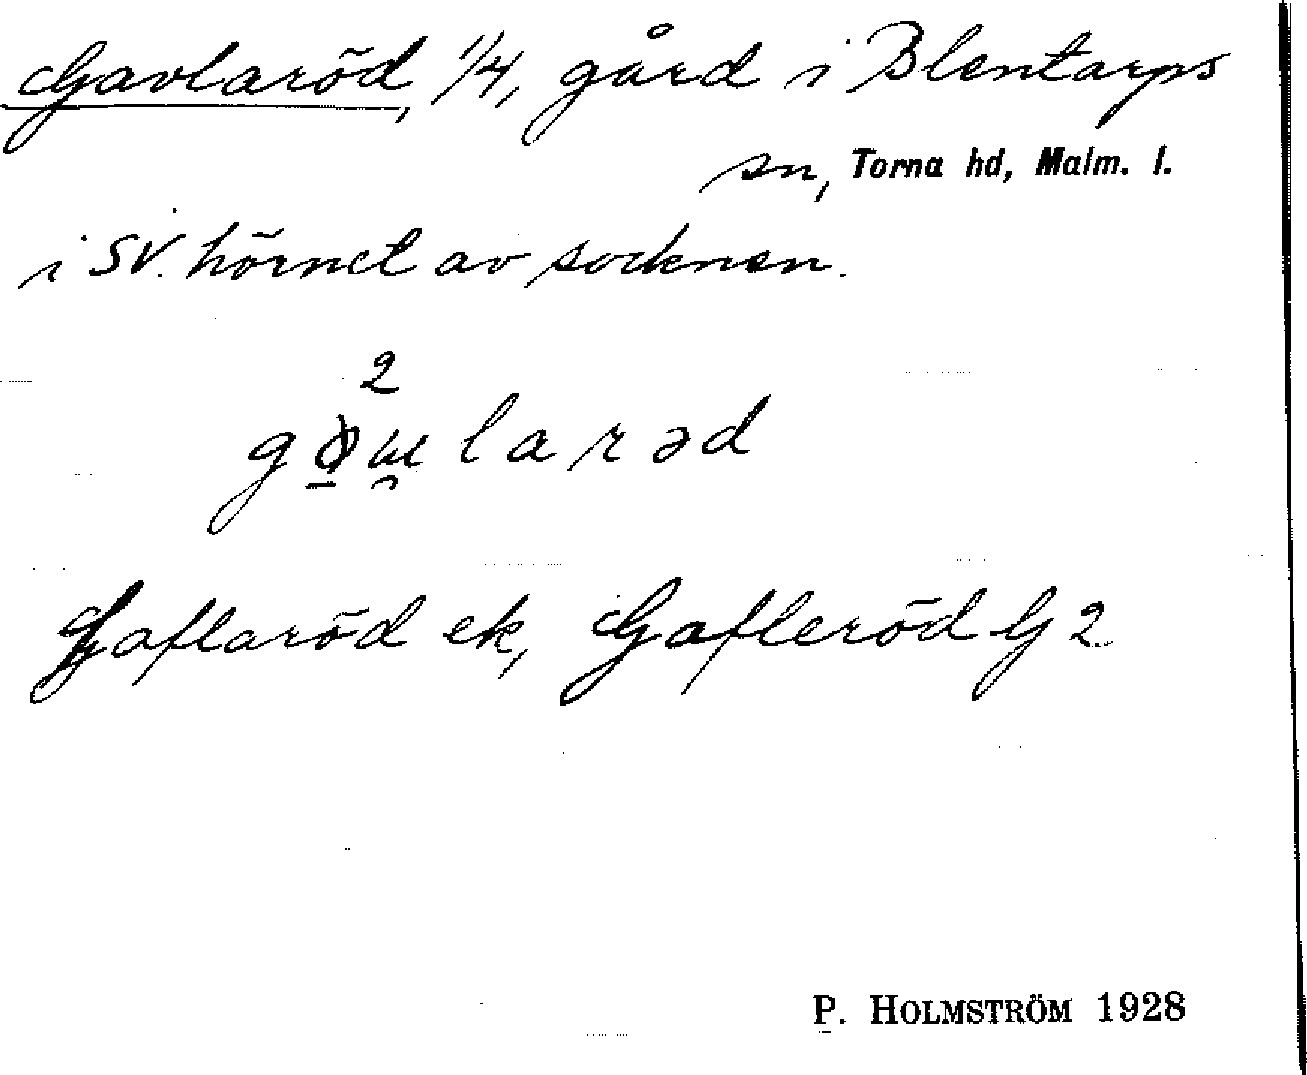 Gavlaröd, 1/4, gård i Blentarps
sn, Torna hd, Malm. l.
i SV. hörnet av socknen.
2
larəd
Gaflaröd ek, Gafleröd G 2
P. HOLMSTRÖM 1928